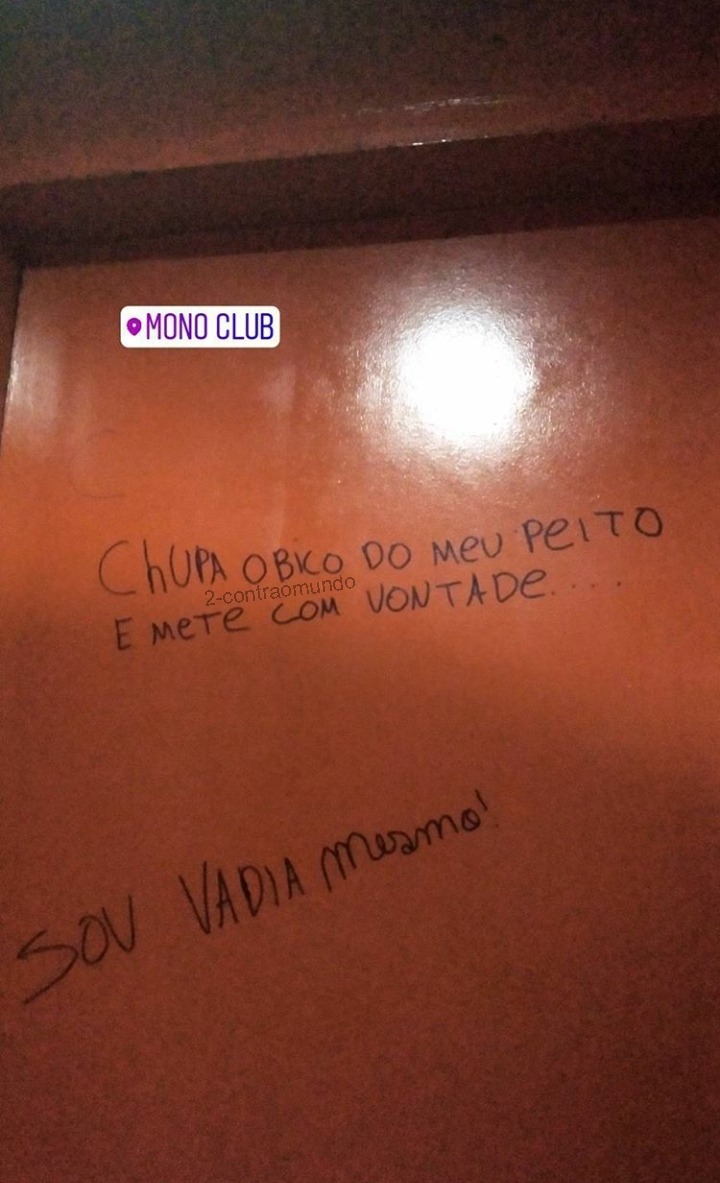 MONO CLUB
CHUPA O BICO DO MEU PEITO
2-contraomundo
E METE COM VONTADE.....
SOU VADIA mesmo!